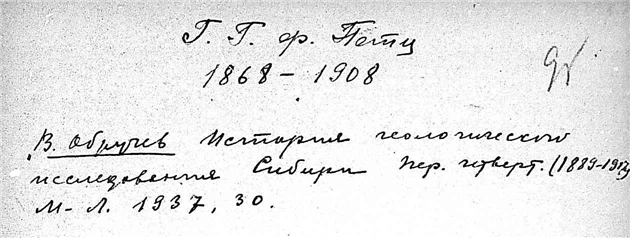 Г. Г. ф. Петц
1868 – 1908
В. Обручев История геологического
исследования Сибири Пер. четверт. (1889-1917)
М-Л. 1937, 30.